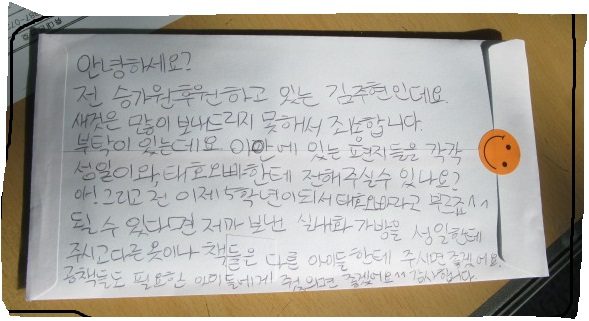 안녕하세요?
전 승가원후원하고 있는 김주현인데요.
새것은 많이 보내드리지 못해서 죄송합니다.
부탁이 있는데요 이안에 있는 편지들을 각각
성일이와, 태호오빠한테 전해주실수 있나요?
아! 그리고 전 이제 5학년이 되서 태호오빠라고 부르죠^^
될 수 있다면 저가 보낸 실내화 가방을 성일한테
주시고 다른 옷이나 책들은 다른 아이들한테 주시면 좋겠어요.
공책들도 필요한 아이들에게 줬으면 좋겠어요^^ 감사합니다.